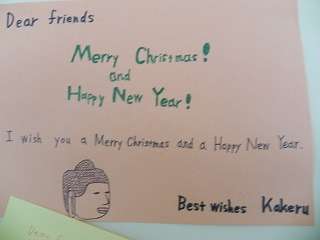 Dear friends
Merry Christmas!
and
Happy New Year!
I wish you a Merry Christmas and a Happy New Year.
Best wishes Kakeru